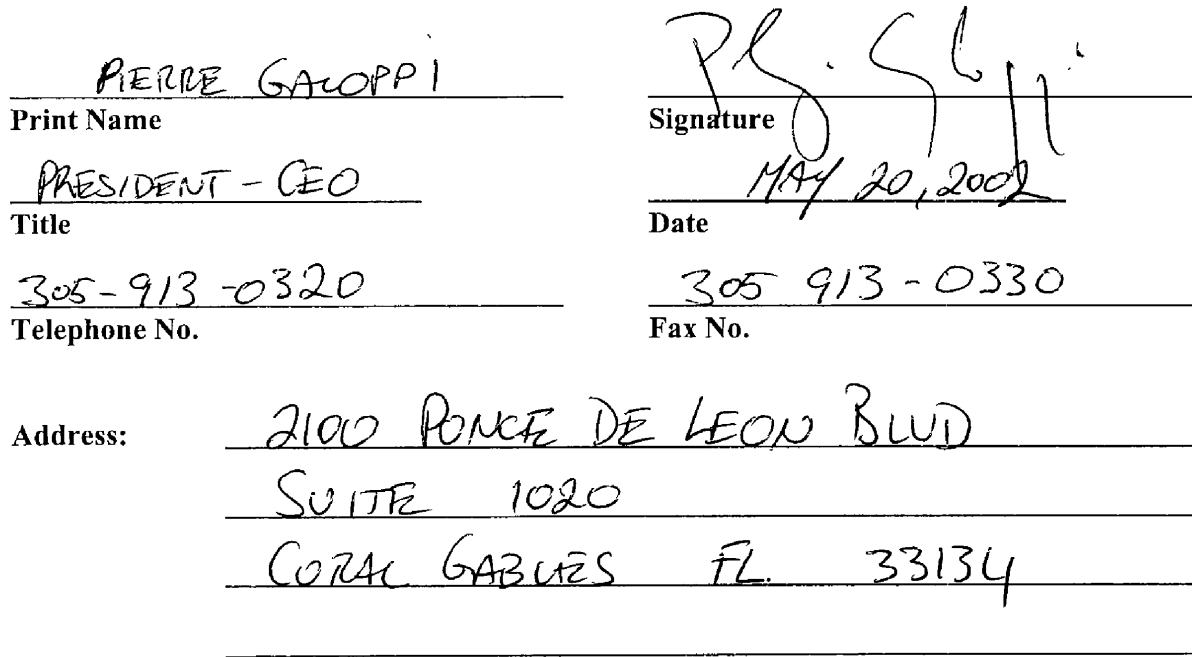 PIERRE GALOPPI
Print Name Signature
PRESIDENT - CEO MAY 20, 2002
Title Date
305-913-0320 305 913-0330
Telephone No. Fax No.
Address: 2100 PONCE DE LEON BLVD
SUITE 1020
CORAL GABLES FL. 33134